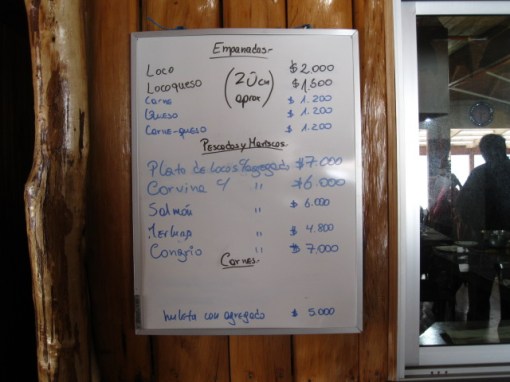 Empanadas.-
Loco $2.000
Locoqueso (20cm aprox) $1.600
Carne $ 1.200
Queso $ 1.200
Carne-queso $ 1.200
Pescados y Mariscos.-
Plato de locos c/agregado $7.000
Corvina c/ " $6.000
Salmón " $ 6.000
Merluza " $ 4.800
Congrio " $ 7.000
Carnes.-
huleta con agregado $ 5.000